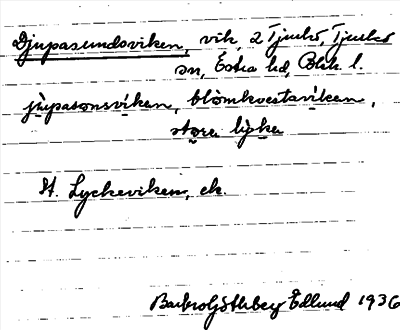 Djupasundsviken, vik, 2 Tjurkö, Tjurkö
sn, Östra hd, Blek l.
jupasonsviken, blomkvestaviken,
stora lykke
St. Lyckeviken, ek.
Barbro Göthberg Edlund 1936